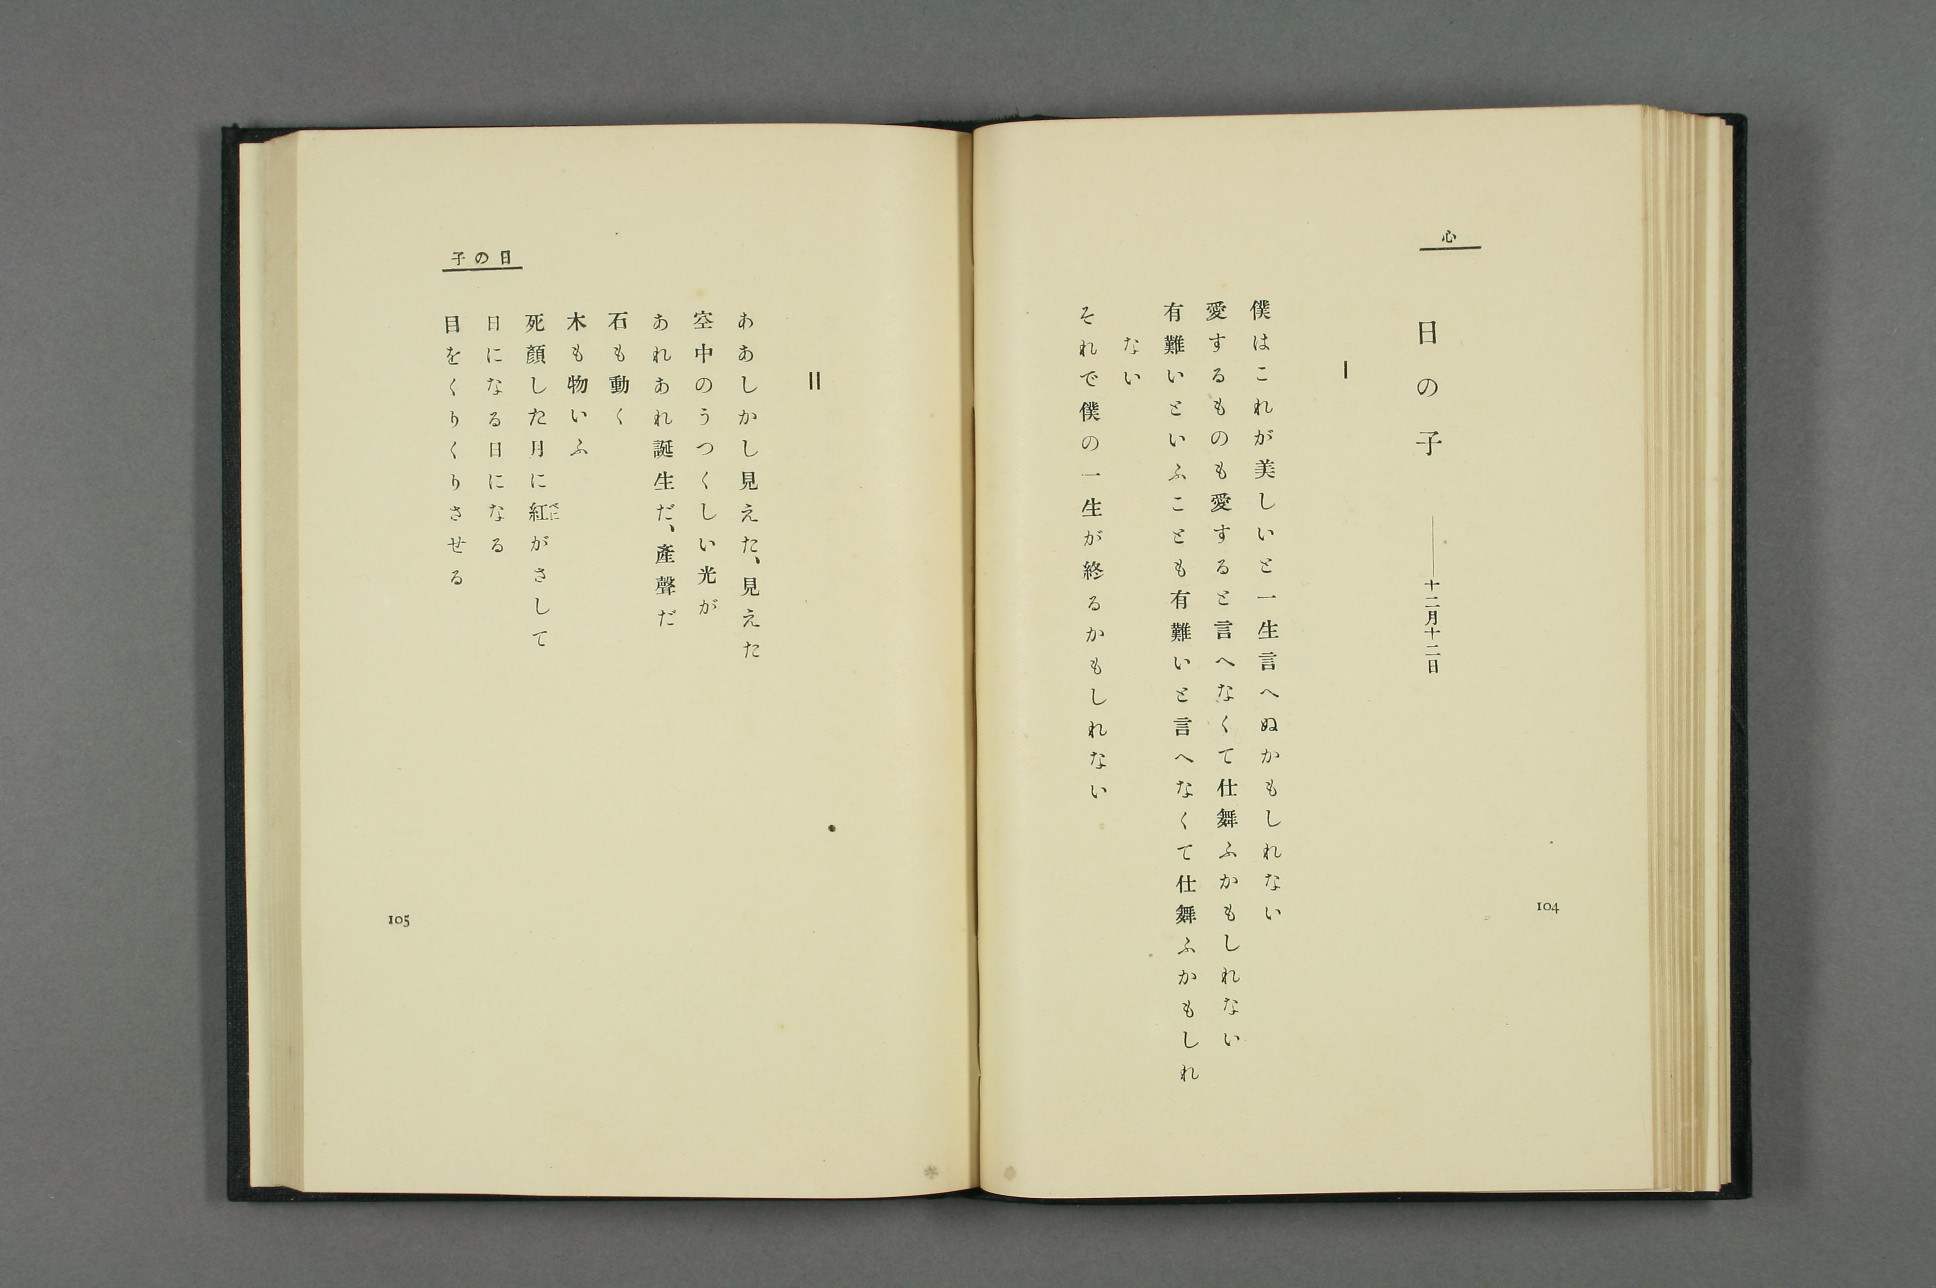 心
日の子 ――十二月十二日
I
僕はこれが美しいと一生言へぬかもしれない
愛するものも愛すると言へなくて仕舞ふかもしれない
有難いといふことも有難いと言へなくて仕舞ふかもしれ
ない
それで僕の一生が終るかもしれない
104
日の子
II
ああしかし見えた、見えた
空中のうつくしい光が
あれあれ誕生だ、產聲だ
石も動く
木も物いふ
死顏した月に紅がさして
日になる日になる
目をくりくりさせる
105